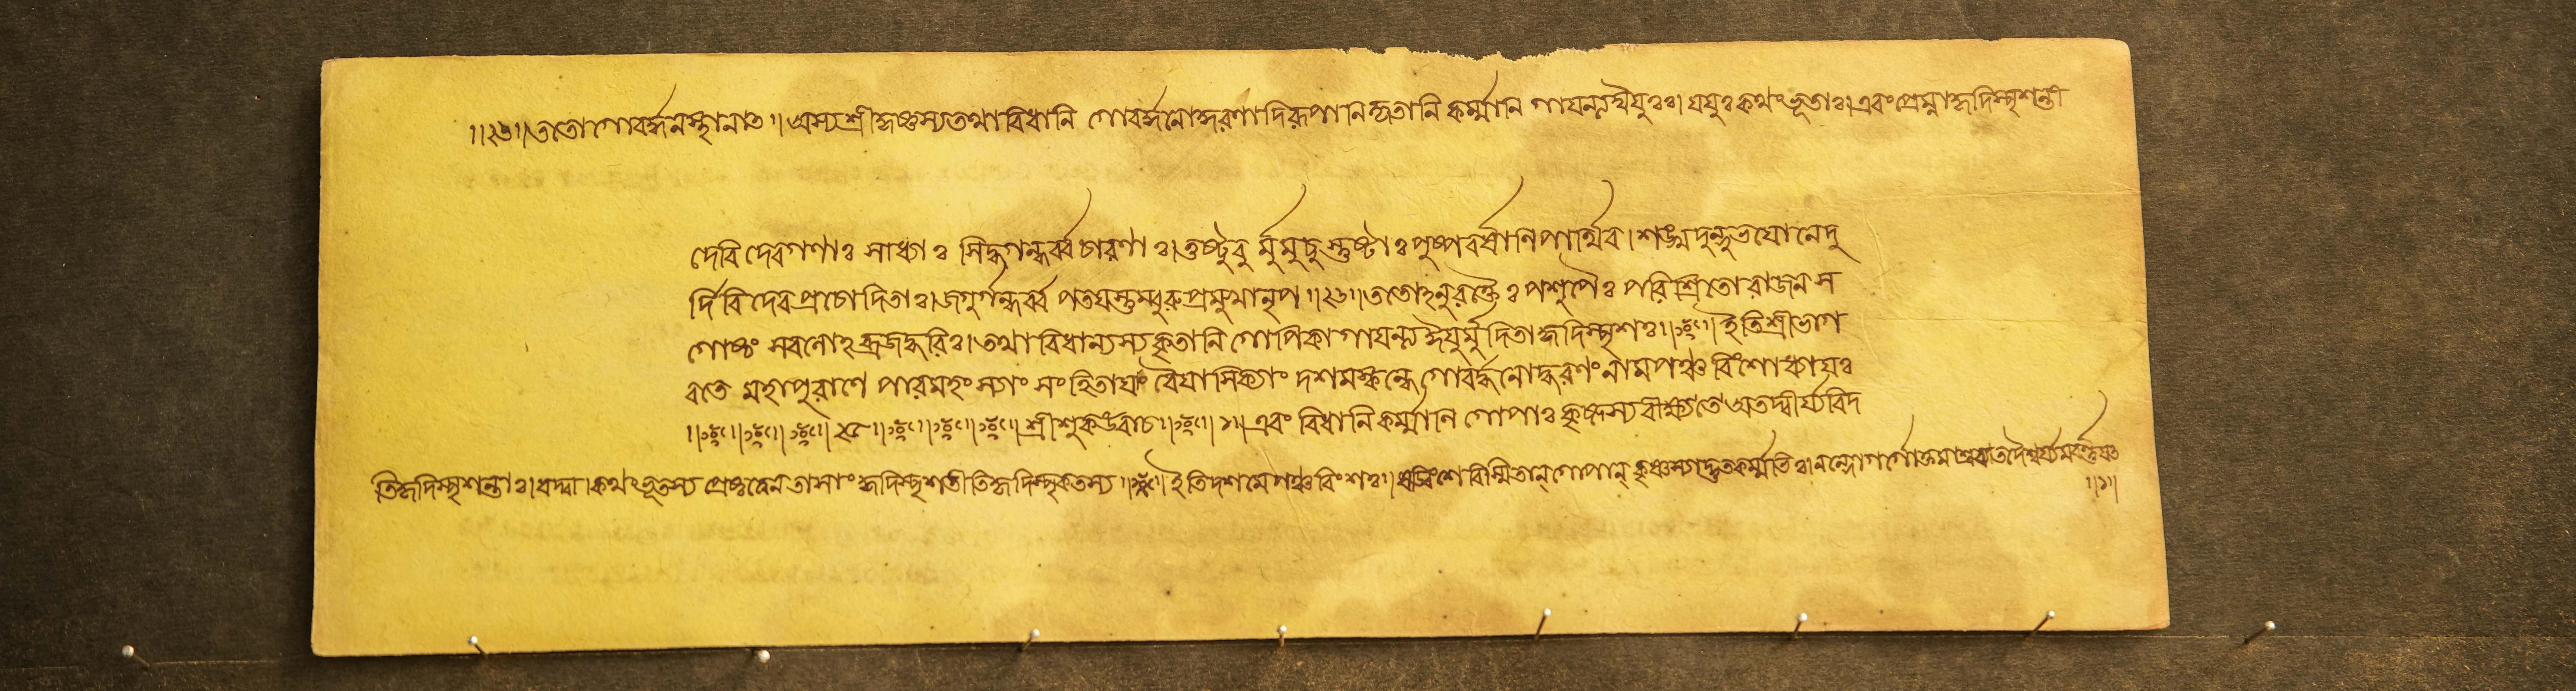 ॥২৬॥ততো গোবর্দ্ধনস্থানাৎ॥অস্য শ্রীকৃষ্ণস্য তথাবিধানি গোবর্দ্ধনোদ্ধরণাদিরূপানি কৃতানি কর্ম্মানি গায়ন্ত্য ঈয়ুঃ। যযুঃ কথংভূতাঃ।এবংপ্রেম্না হৃদিস্পৃশন্তী
দেবি দেবগণাঃ সাধ্যাঃ সিদ্ধগন্ধর্ব্বচারণাঃ।তুষ্টুবুর্ম্মুমুচুস্তুষ্টাঃ পুষ্পবর্ষানি পার্থিব।শঙ্খদুন্দুভয়োনেদু
র্দিবি দেবপ্রচোদিতাঃ।জগুর্গন্ধর্ব্বপতয়স্তুম্বুরুপ্রমুখানৃপ॥২৬॥ততোঽনুরক্তৈঃ পশুপৈঃ পরিশ্রিতো রাজন স
গোষ্ঠং সবলোঽব্রজদ্ধরিঃ।তথাবিধান্যস্য কৃতানি গোপিকা গায়ন্ত্য ঈয়ুর্মুদিতা হৃদিস্পৃশঃ॥ ॥ইতি শ্রীভাগ
বতে মহাপুরাণে পারমহংস্যাং সংহিতায়াং বৈয়াসিক্যাং দশমস্কন্ধে গোবর্দ্ধনোদ্ধরণং নাম পঞ্চবিংশোধ্যায়ঃ
॥ ॥ ॥ ॥ ২৫॥ ॥ ॥ ॥ শ্রীশুকউবাচ॥ ॥ ১॥এবং বিধানি কর্ম্মানি গোপাঃ কৃষ্ণস্য বীক্ষ্যতে অতদ্বীর্য্যবিদ
তি হৃদিস্পৃশন্তাঃ।যদ্বা।কথংভূতস্য প্রেষ্ঠত্বেন তাসাং হৃদিস্পৃশতীতি হৃদিস্পৃক তস্য॥ ॥ইতি দশমে পঞ্চবিংশঃ॥ষড়্বিংশে বিস্মিতান্ গোপান্ কৃষ্ণস্যাদ্ভুতকর্ম্মভিঃ।নন্দো গর্গোক্তম
॥১॥